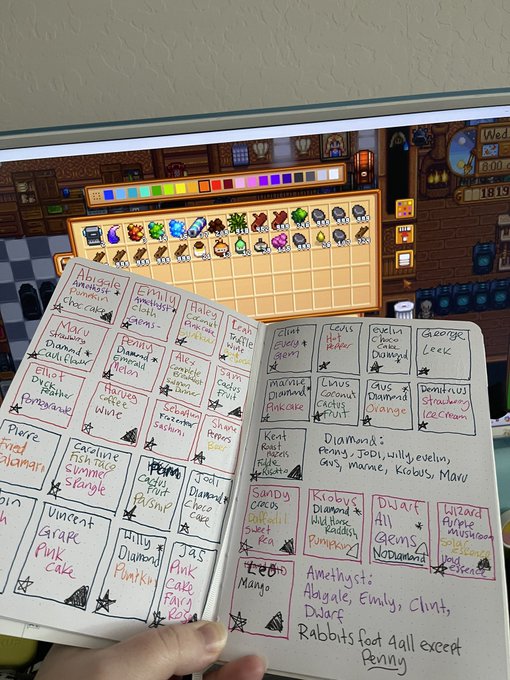 Abigale
Amethyst
Pumpkin
choc cake
Emily
Amethyst
cloth
Gems
Haley
Coconut
Pink cake
Leah
Truffle
Wine
Maru
strawberry
Diamond
Cauliflower
Penny
Diamond
Emerald
Melon
Alex
Complete
Breakfast
Salmon
Dinner
Sam
Cactus
Fruit
Elliot
Duck
Feather
Pomegranate
Harvey
Coffee
Wine
Sebastian
Sashimi
Shane
Peppers
Beer
Pierre
Fried
Calamari
Caroline
Fish Taco
Summer
Spangle
Cactus
Fruit
Parsnip
Jodi
Diamond
Choco
Cake
Vincent
Grape
Pink
Cake
Willy
Diamond
Pumpkin
Jas
Pink
Cake
Fairy
Rose
Clint
Every
Gem
Lewis
Hot
Pepper
evelin
Choco
Cake
Diamond
George
Leek
Marnie
Diamond
Pink cake
Linus
Coconut
Cactus
Fruit
Gus
Diamond
Orange
Demitrius
Strawberry
ice cream
Kent
Roast
Hazels
Fiddle
Risotto
Diamond:
Penny, Jodi, willy, evelin,
Gus, marnie, Krobus, Maru
Sandy
Crocus
Daffodil
Sweet
Pea
Krobus
Diamond
Wild Horse
Raddish
Pumpkin
Dwarf
All
Gems
No Diamond
Wizard
Purple
mushroom
Solar
essence
Void
essence
Leo
Mango
Amethyst:
Abigale, Emily, Clint,
Dwarf
Rabbits foot 4 all except
Penny
Wed.